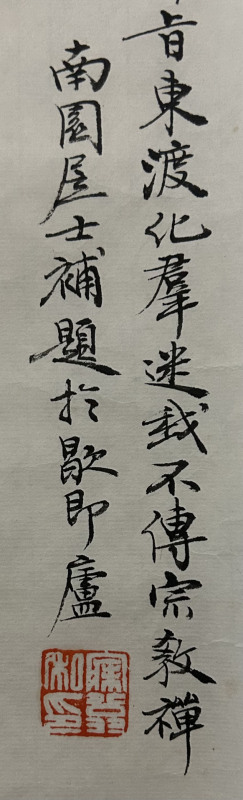 旨東渡化羣迷我不傳宗教禪
南園居士補題於歇即廬
私印